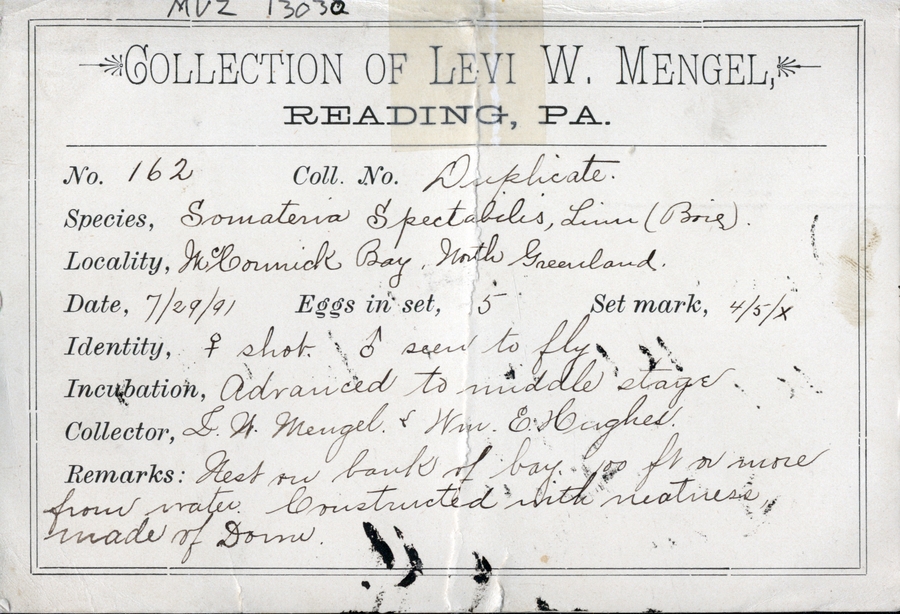 MVZ 13032
COLLECTION OF LEVI W. MENGEL,
READING, PA.
No. 162 Coll. No. Duplicate.
Species, Somateria Spectabilis, Linn (Boie).
Locality, McCormick Bay, North Greenland.
Date, 7/29/91 Eggs in set, 5 Set mark, 4/5/x
Identity, ♀ shot. ♂ seen to fly
Incubation, Advanced to middle stage
Collector, L. W. Mengel. & Wm. E. Hughes.
Remarks: Nest on bank of bay 400 ft or more
from water. Constructed with neatness,
made of Down.